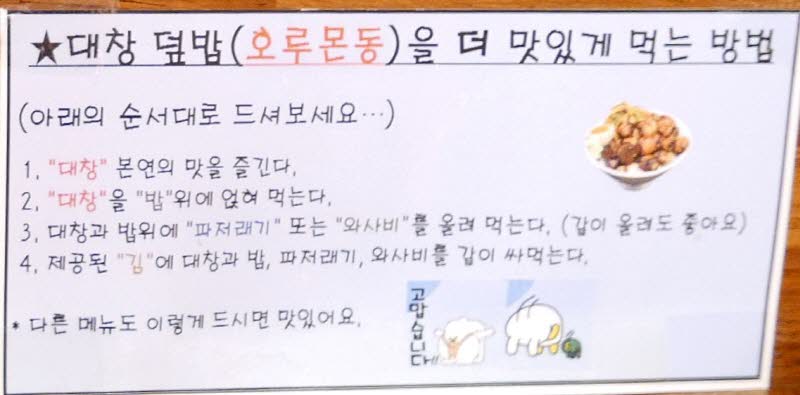 ★대창 덮밥(오루몬동)을 더 맛있게 먹는 방법
(아래의 순서대로 드셔보세요…)
1. "대창" 본연의 맛을 즐긴다.
2. "대창"을 "밥"위에 얹혀 먹는다.
3. 대창과 밥위에 "파저래기" 또는 "와사비"를 올려 먹는다. (갑이 올려도 좋아요)
4. 제공된 "김"에 대창과 밥, 파저래기, 와사비를 갑이 싸먹는다.
* 다른 메뉴도 이렇게 드시면 맛있어요.
고맙습니다!!